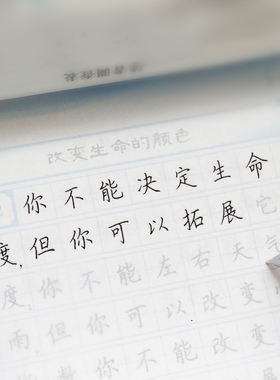 读者调查表
改变生命的颜色
你不能决定生命
度,但你可以拓展它
度,你不能左右天
雨,但你可以改变
你不能